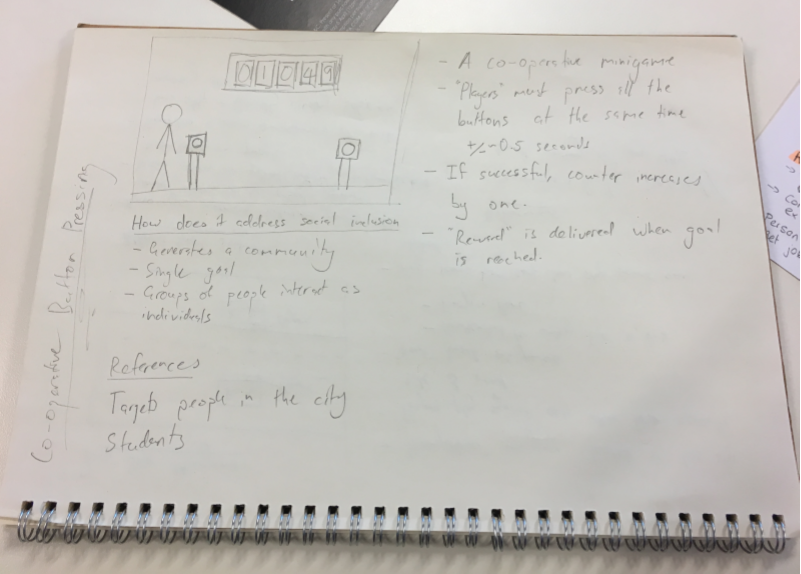 Co-operative Button Pressing
01049
How does it address social inclusion
- Generates a community
- Single goal
- Groups of people interact as
individuals
References
Targets people in the city
Students
- A co-operative minigame
- "Players" must press all the
buttons at the same time
+/- ~0.5 seconds
- If successful, counter increases
by one.
- "Reward" is delivered when goal
is reached.
person